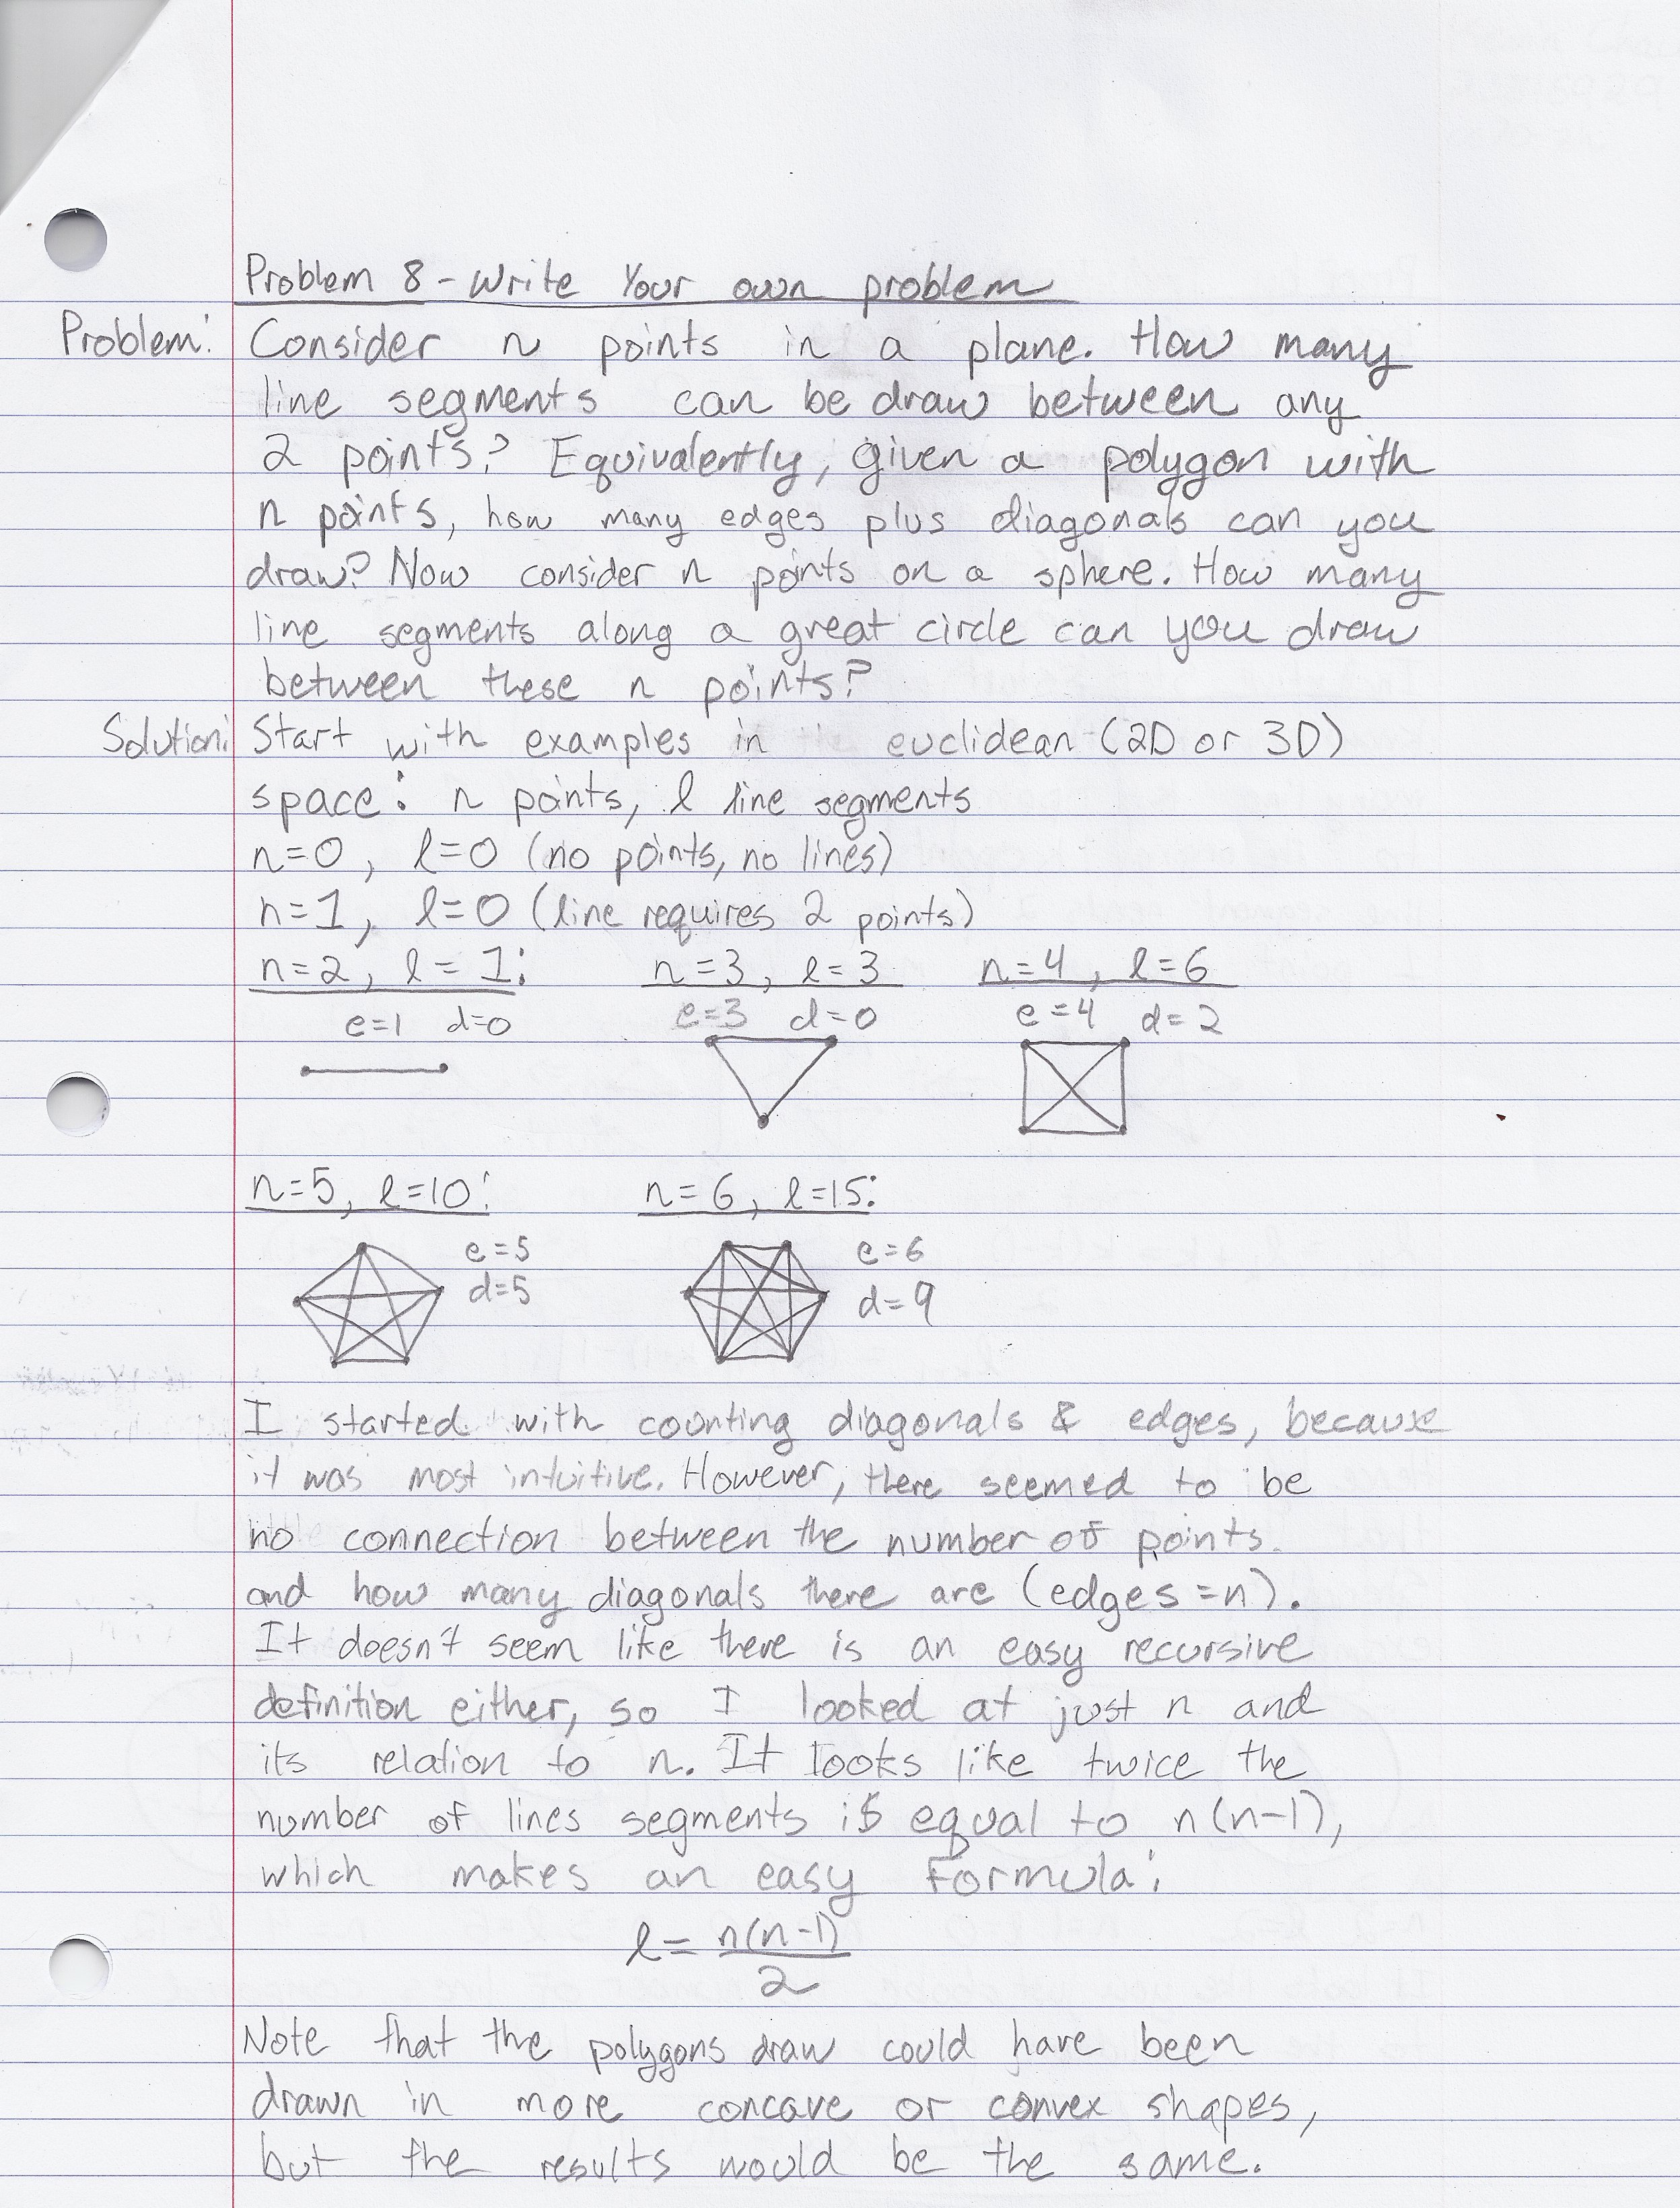 Problem 8 - Write Your own problem
Problem: Consider n points in a plane. How many
line segments can be draw between any
2 points? Equivalently, given a polygon with
n points, how many edges plus diagonals can you
draw? Now consider n points on a sphere. How many
line segments along a great circle can you draw
between these n points?
Solution: Start with examples in euclidean (2D or 3D)
space: n points, l line segments
n=0, l=0 (no points, no lines)
n=1, l=0 (line requires 2 points)
n=2, l=1: n=3, l=3 n=4, l=6
e=1 d=0 e=3 d=0 e=4 d=2
n=5, l=10: n=6, l=15:
e=5 e=6
d=5 d=9
I started with counting diagonals & edges, because
it was most intuitive. However, there seemed to be
no connection between the number of points
and how many diagonals there are (edges=n).
It doesn't seem like there is an easy recursive
definition either, so I looked at just n and
its relation to n. It looks like twice the
number of lines segments is equal to n(n-1),
which makes an easy formula:
l = n(n-1)/2
Note that the polygons draw could have been
drawn in more concave or convex shapes,
but the results would be the same.